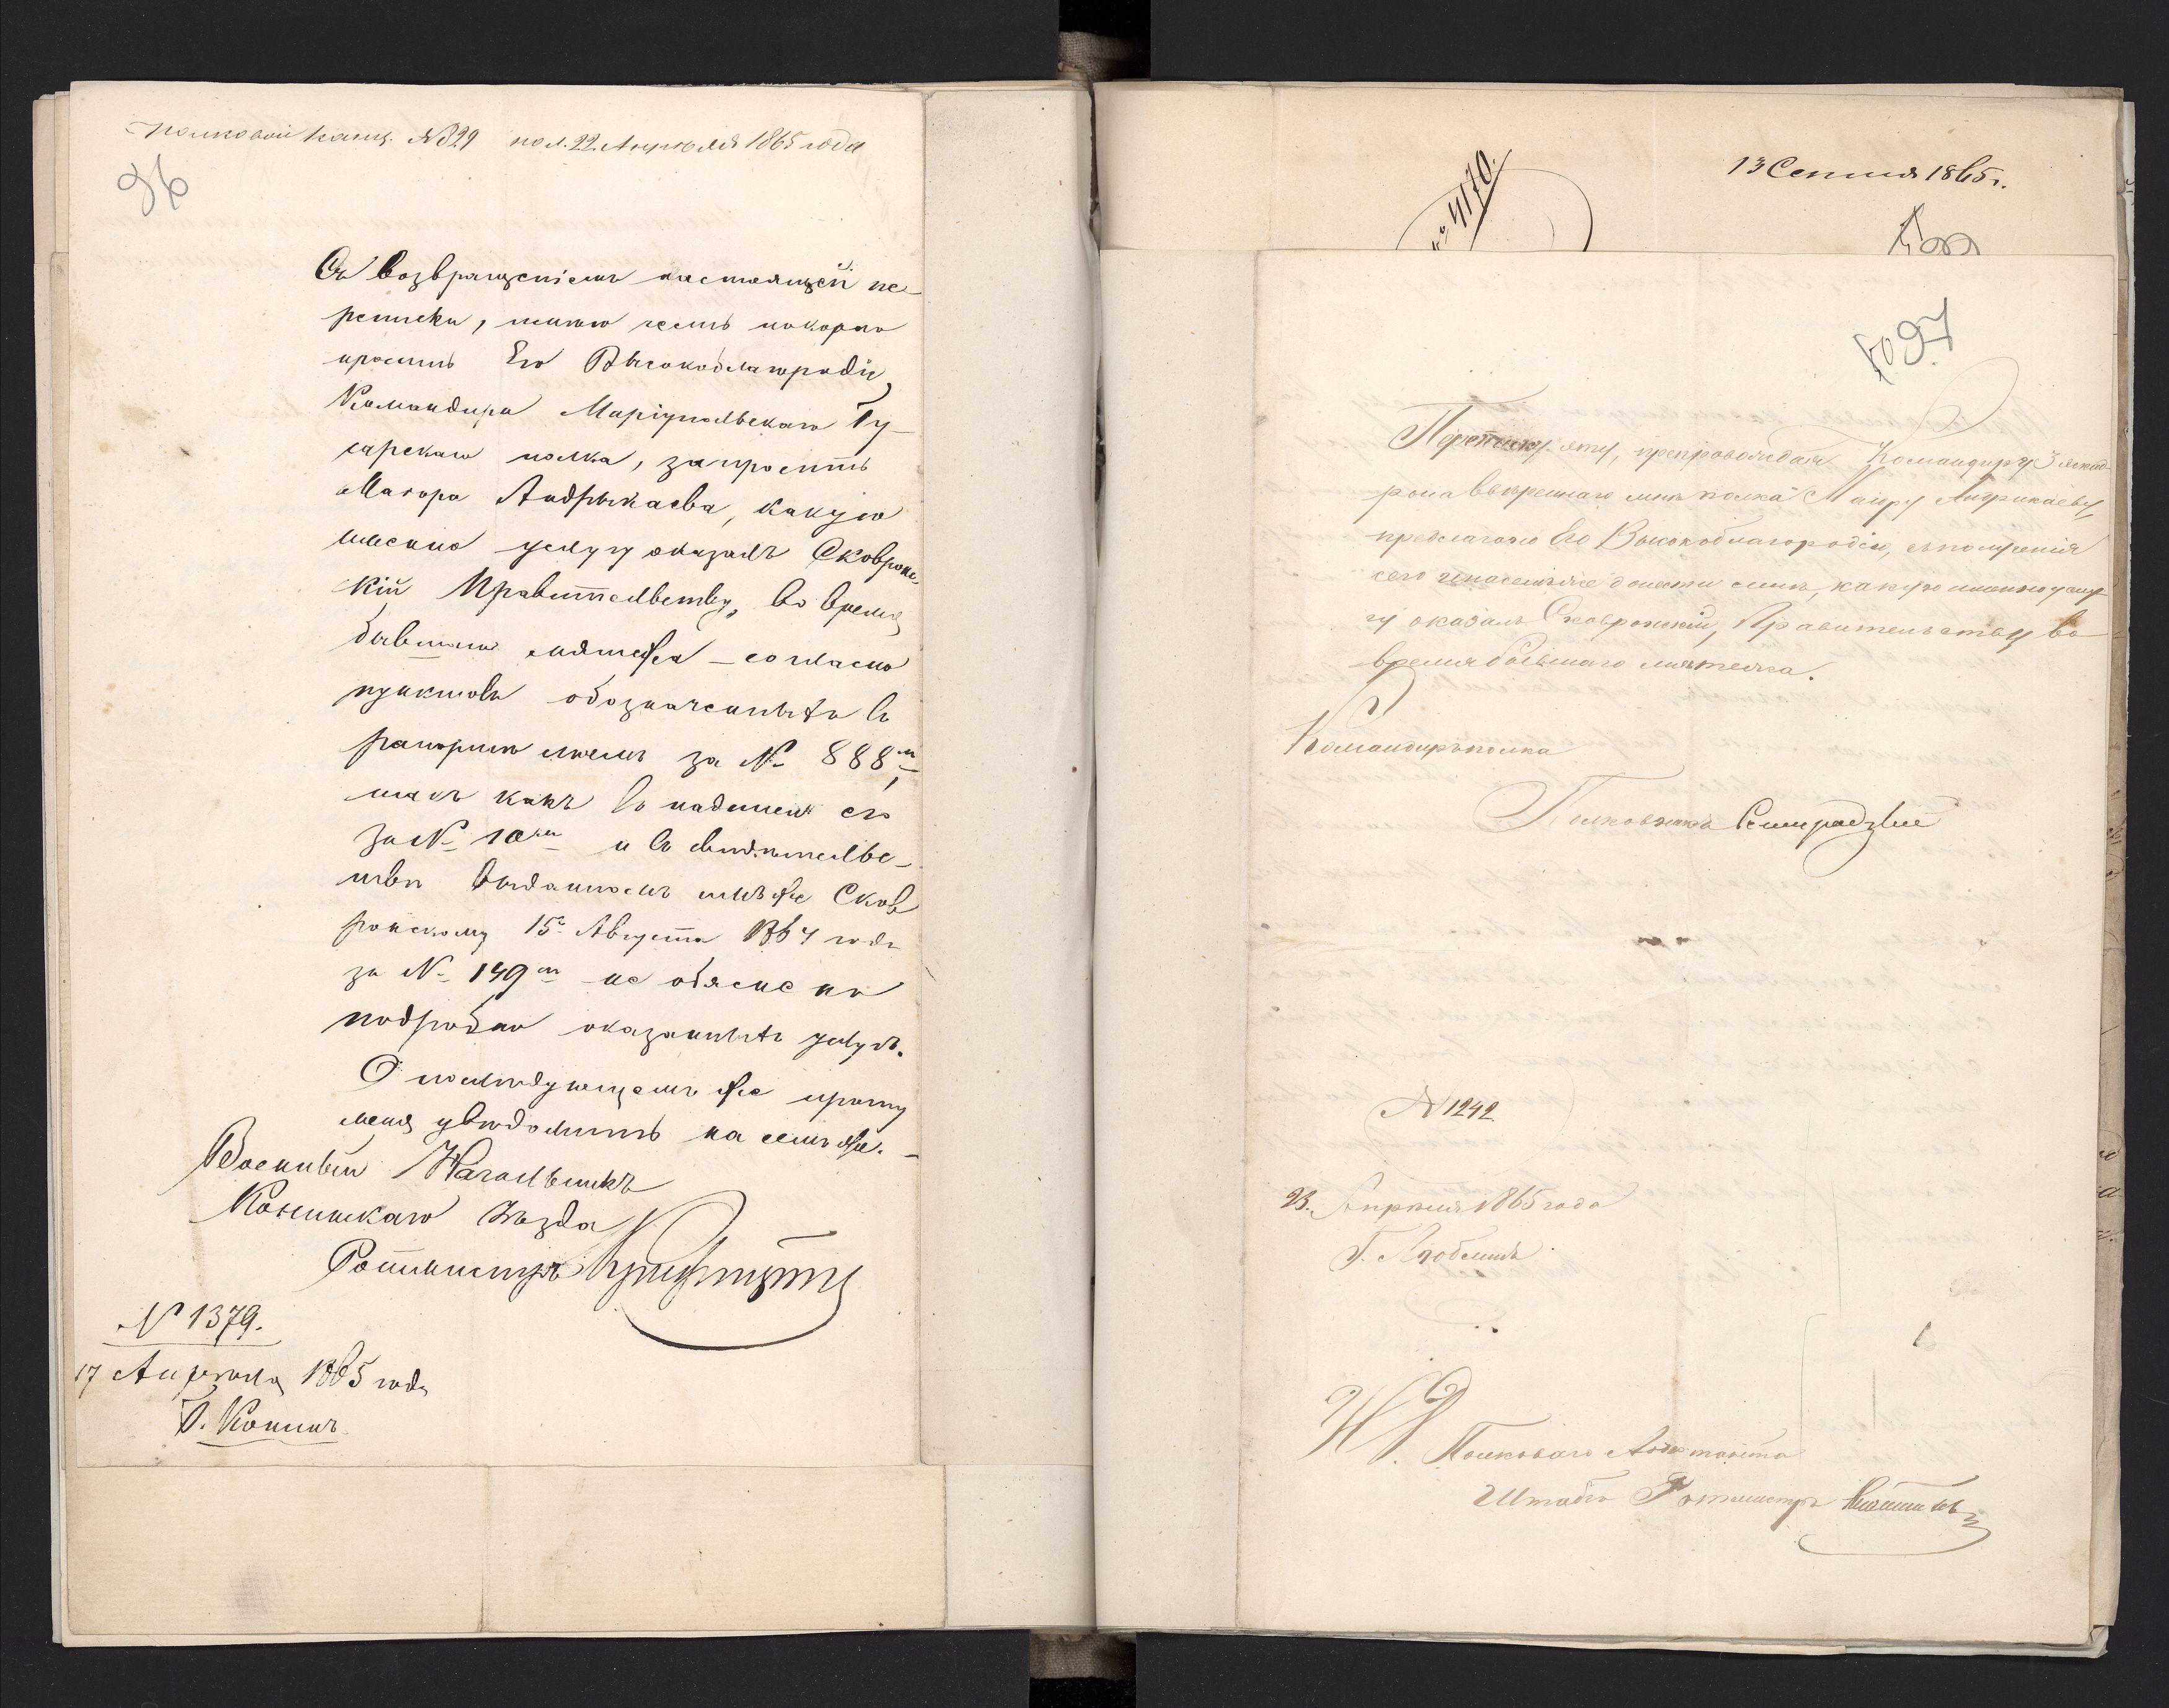 Полковой Канц. № 829 пол. 22 Апреля 1865 года
96
Съ возвращеніемъ настоящей пе-
реписки, имѣю честь покорно
просить Его Высокоблагородіе,
Командира Маріупольскаго Гу-
сарскаго полка, запросить
Маіора Андрыкаева, какую
именно услугу оказалъ Скавронс-
кій Правительству, во время
бывшаго мятежа – согласно
пунктовъ обозначенныхъ въ
рапортѣ моемъ за № 888м
такъ какъ въ надписи его
за № 10м и въ свидѣтельс-
твѣ выданномъ имъ же Скав
ронскому 15го Августа 1864 года
за № 149м не обяснено
подробно оказанныхъ услугъ.
О послѣдующемъ же прошу
меня увѣдомить на семъ же. –
Военный Начальникъ
Конинскаго Уѣзда
Ротмистръ
№ 1379.
17 Апрѣля 1865 года
Г. Конинъ
№ 4170.
13 Сентяб 1865 г.
97
Переписку эту, препровождая Командиру 3 эскад-
рона ввѣреннаго мнѣ полка Маіору Андрикаеву,
предлагаю Его Высокоблагородію, съ полученія
сего донести мнѣ, какую именно услу-
гу оказалъ Скавронскій, Правительству во
время бывшаго мятежа.
Командиръ полка
Полковникъ Семирадзкій
№ 1242
23. Апрѣля 1865 года
Г. Люблинъ
Полковаго Адьютанта
Штабъ Ротмистръ